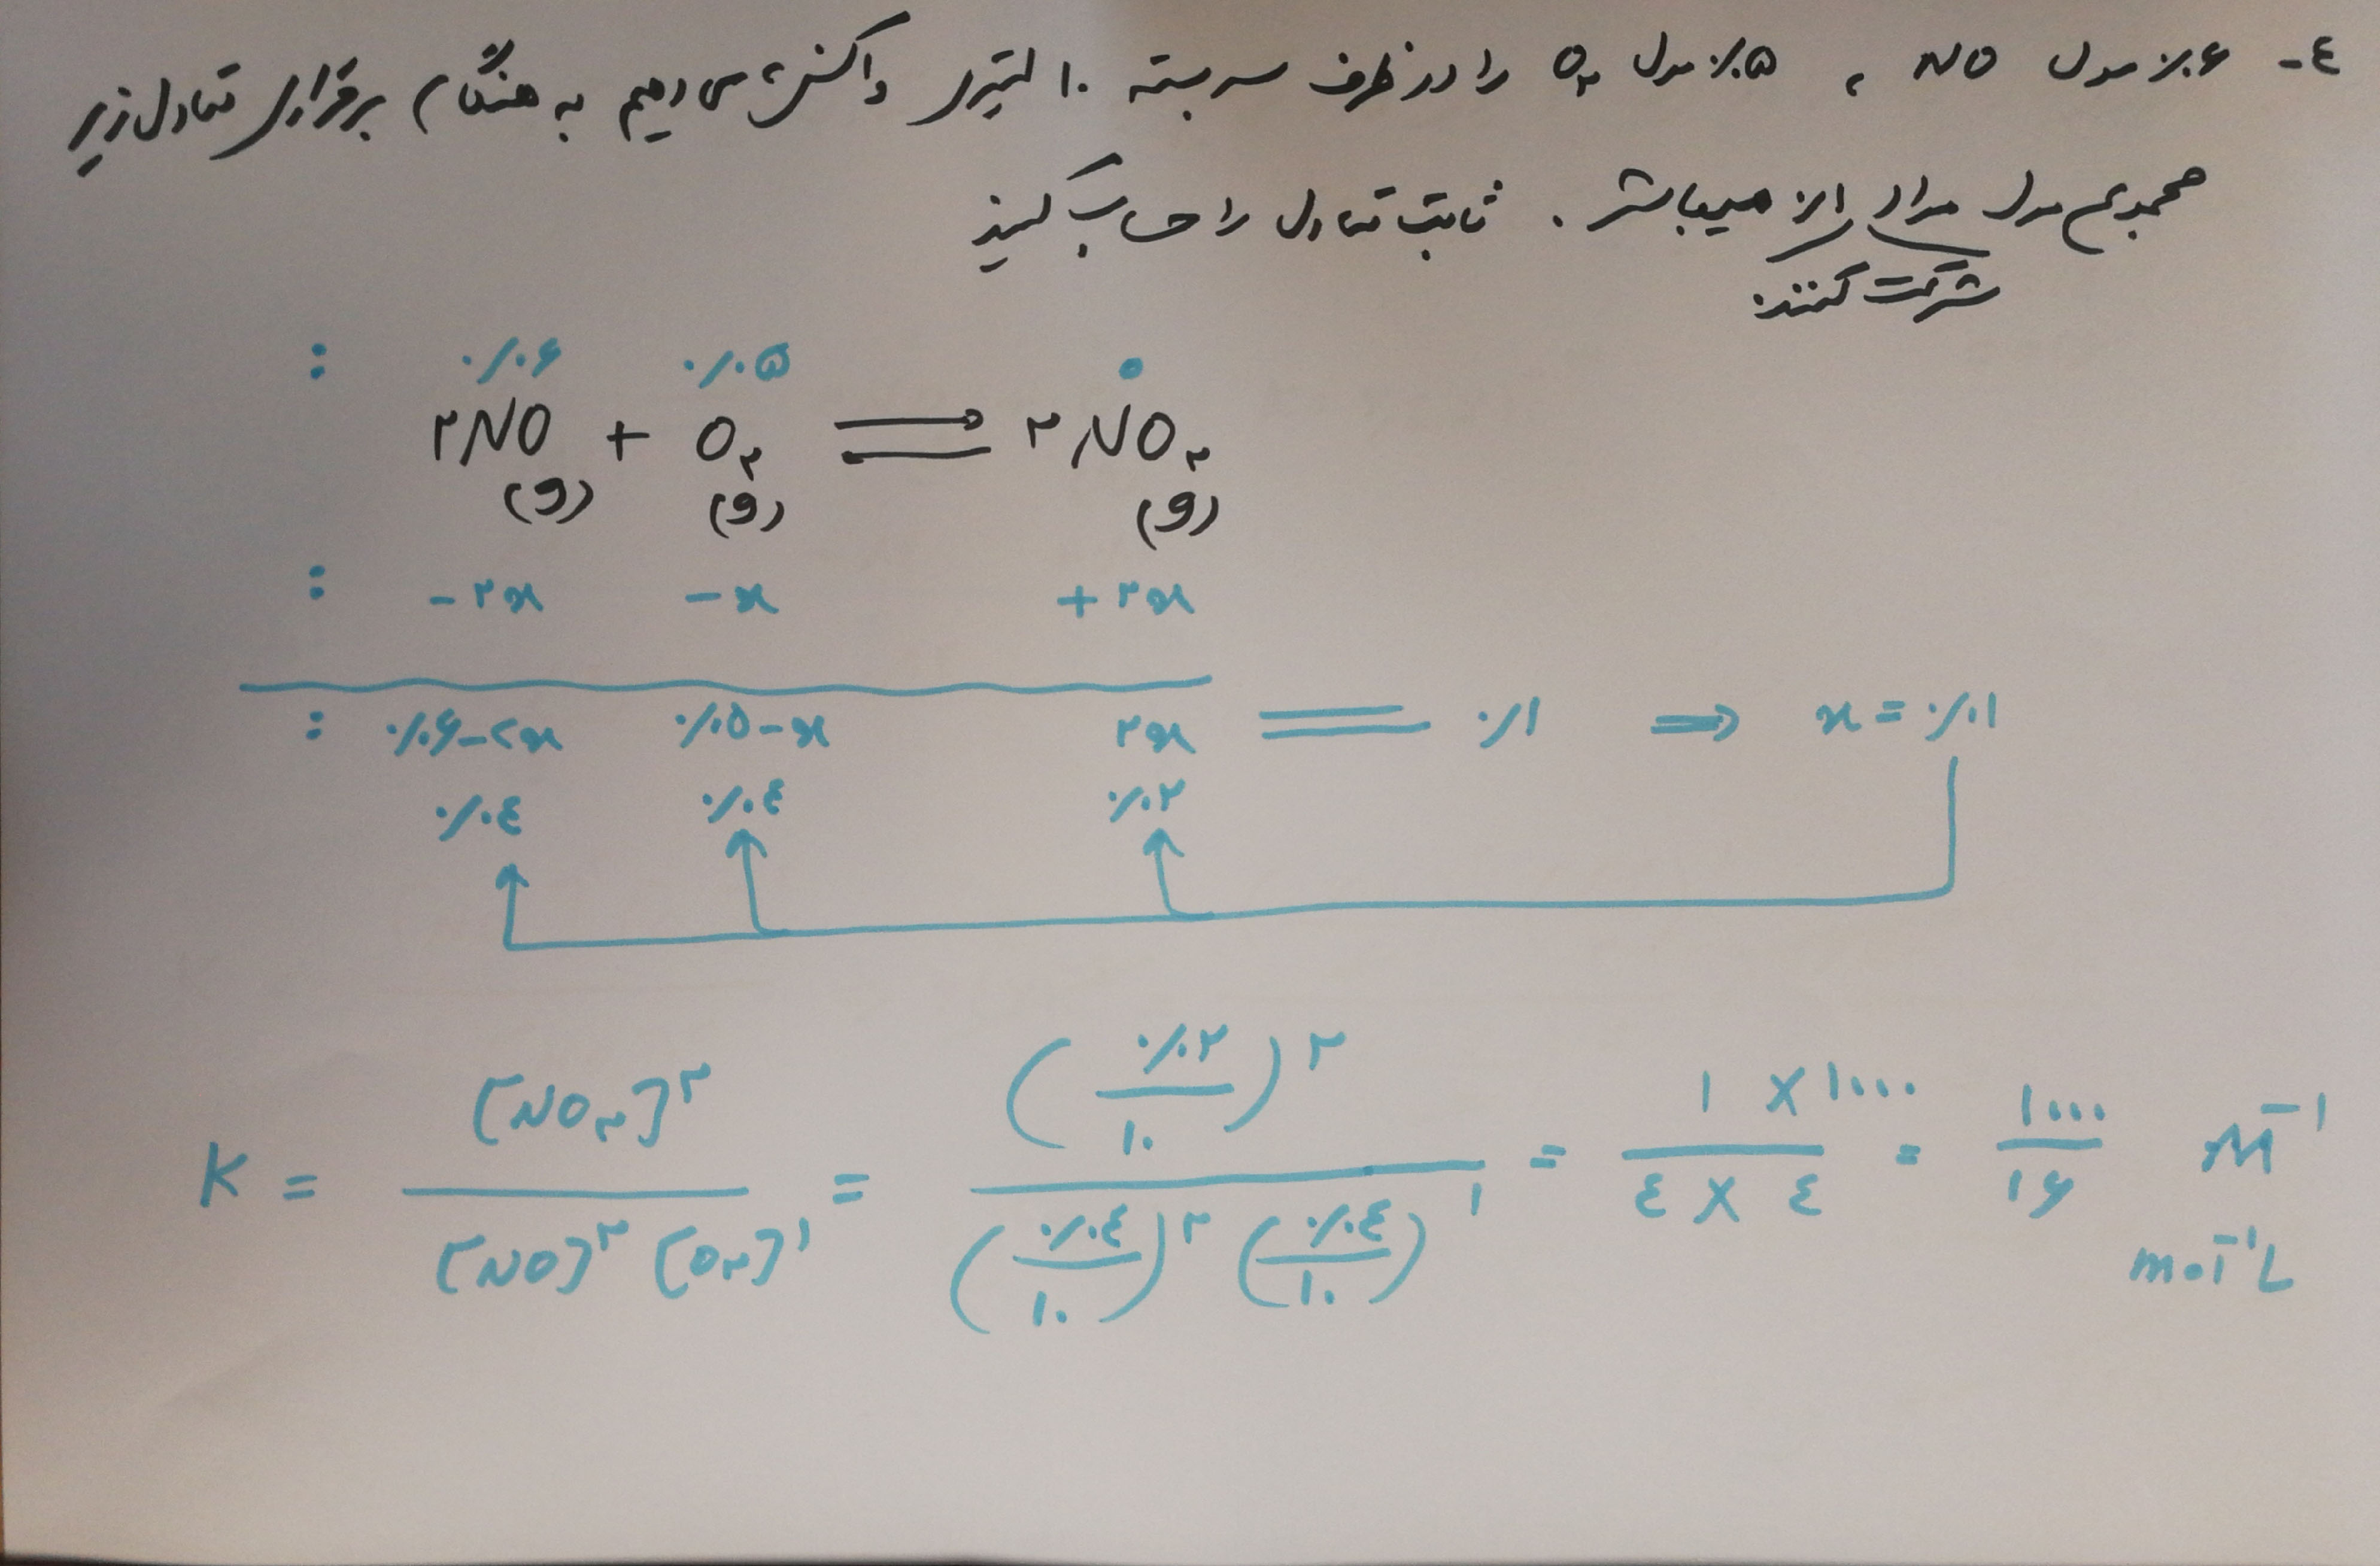 ٤- ۰/۰۶ مول NO و ۰/۰۵ مول O۲ را در ظرف سربسته ۱۰ لیتری واکنش می دهیم به هنگام برقراری تعادل زیر
مجموع مول مواد ۰/۱ میباشد. ثابت تعادل را حساب کنید
شرکت کننده
: ۰/۰۶ ۰/۰۵ ۰
۲NO(g) + O۲(g) ⇌ ۲NO۲(g)
: -۲x -x +۲x
: ۰/۰۶-۲x ۰/۰۵-x ۲x = ۰/۱ ⇒ x = ۰/۰۱
۰/۰٤ ۰/۰٤ ۰/۰۲
K = [NO۲]^۲ / [NO]^۲ [O۲]^۱ = (۰/۰۲ / ۱۰)^۲ / (۰/۰٤ / ۱۰)^۲ (۰/۰٤ / ۱۰)^۱ = ۱ × ۱۰۰۰ / ٤ × ٤ = ۱۰۰۰ / ۱۶ M^-۱
mol^-۱ L